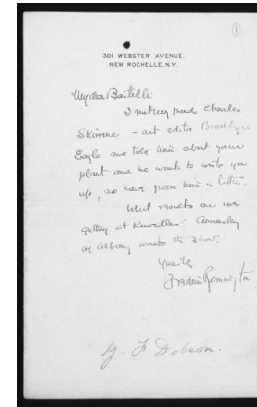 1
301 WEBSTER AVENUE,
NEW ROCHELLE, N.Y.
My dear Bertelli
I met my friend Charles
Skinner - art editor Brooklyn
Eagle and told him about your
plant and he wants to write you
up, so have given him a letter.
What results are we
getting at Knoedlers?
at Albany wants the show.
Yours
Frederic Remington
G. F. Dobson.